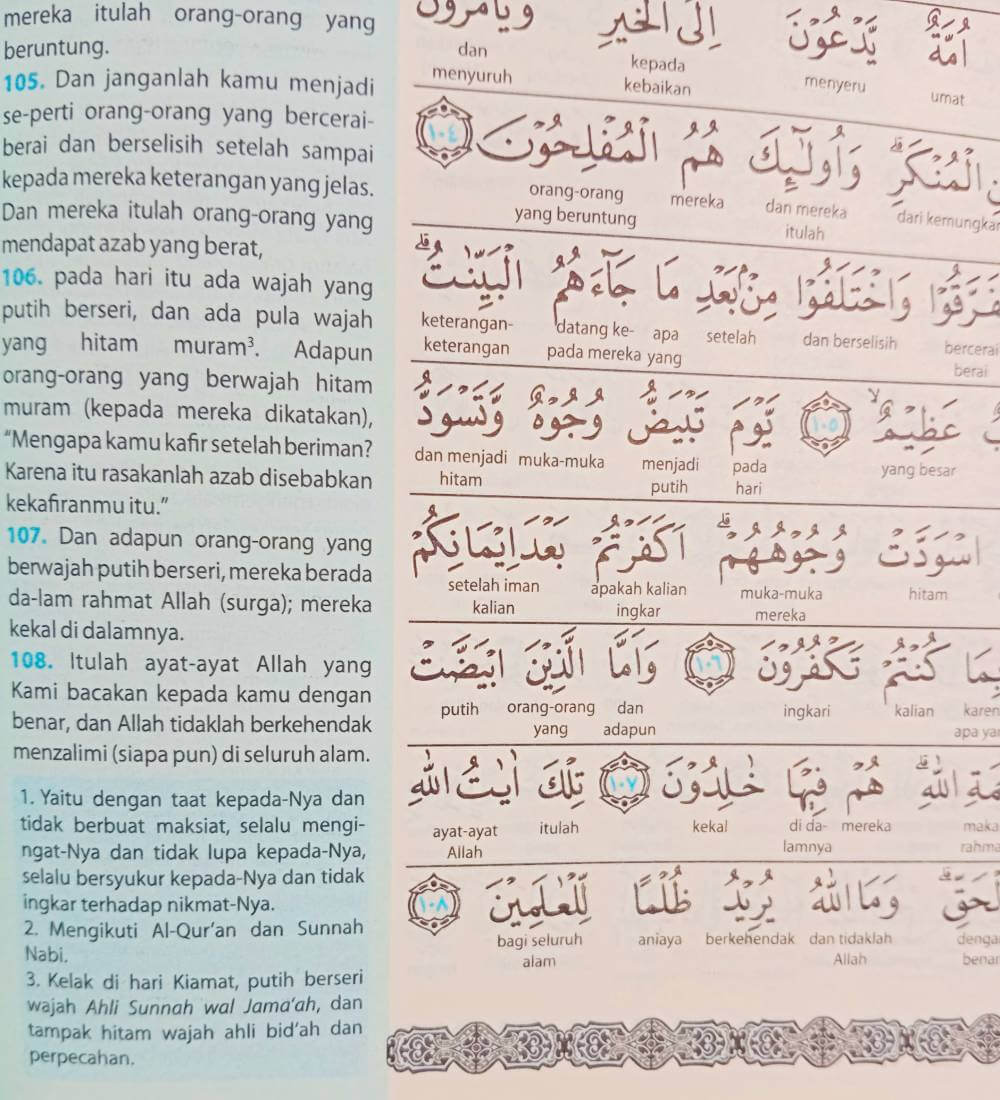 mereka itulah orang-orang yang
beruntung.
105. Dan janganlah kamu menjadi
se-perti orang-orang yang bercerai-
berai dan berselisih setelah sampai
kepada mereka keterangan yang jelas.
Dan mereka itulah orang-orang yang
mendapat azab yang berat,
106. pada hari itu ada wajah yang
putih berseri, dan ada pula wajah
yang hitam muram³. Adapun
orang-orang yang berwajah hitam
muram (kepada mereka dikatakan),
“Mengapa kamu kafir setelah beriman?
Karena itu rasakanlah azab disebabkan
kekafiranmu itu.”
107. Dan adapun orang-orang yang
berwajah putih berseri, mereka berada
da-lam rahmat Allah (surga); mereka
kekal di dalamnya.
108. Itulah ayat-ayat Allah yang
Kami bacakan kepada kamu dengan
benar, dan Allah tidaklah berkehendak
menzalimi (siapa pun) di seluruh alam.
1. Yaitu dengan taat kepada-Nya dan
tidak berbuat maksiat, selalu mengi-
ngat-Nya dan tidak lupa kepada-Nya,
selalu bersyukur kepada-Nya dan tidak
ingkar terhadap nikmat-Nya.
2. Mengikuti Al-Qur’an dan Sunnah
Nabi.
3. Kelak di hari Kiamat, putih berseri
wajah Ahli Sunnah wal Jama’ah, dan
tampak hitam wajah ahli bid’ah dan
perpecahan.
أُمَّةٌ يَدْعُونَ إِلَى الْخَيْرِ
dan kepada menyeru umat
menyuruh kebaikan
الْمُنْكَرِ ۗ وَأُولَٰئِكَ هُمُ الْمُفْلِحُونَ ١٠٤
orang-orang mereka dan mereka dari kemungkar
yang beruntung itulah
وَاخْتَلَفُوا مِنْ بَعْدِ مَا جَاءَهُمُ الْبَيِّنٰتُ ۗ
keterangan- datang ke- apa setelah dan berselisih bercerai
keterangan pada mereka yang berai
عَظِيْمٌ ۙ ١٠٥ يَوْمَ تَبْيَضُّ وُجُوْهٌ وَّتَسْوَدُّ
dan menjadi muka-muka menjadi pada yang besar
hitam putih hari
اسْوَدَّتْ وُجُوْهُهُمْ ۗ اَكَفَرْتُمْ بَعْدَ اِيْمَانِكُمْ
setelah iman apakah kalian muka-muka hitam
kalian ingkar mereka
كُنْتُمْ تَكْفُرُوْنَ ١٠٦ وَاَمَّا الَّذِيْنَ ابْيَضَّتْ
putih orang-orang dan ingkari kalian karen
yang adapun apa ya
اللّٰهِ ۗ هُمْ فِيْهَا خٰلِدُوْنَ ١٠٧ تِلْكَ اٰيٰتُ اللّٰهِ
ayat-ayat itulah kekal di da- mereka maka
Allah lamnya rahma
وَمَا اللّٰهُ يُرِيْدُ ظُلْمًا لِّلْعٰلَمِيْنَ ١٠٨
bagi seluruh aniaya berkehendak dan tidaklah denga
alam Allah benar